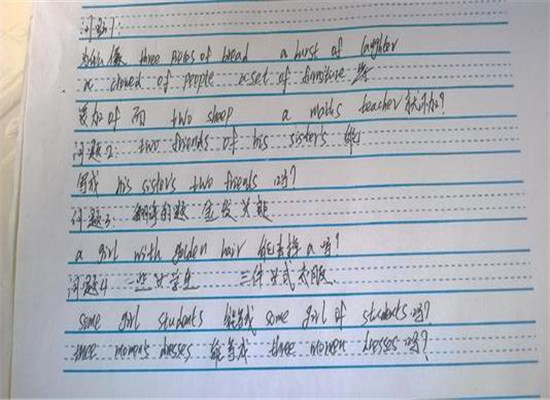 问题1:
为什么像 three pieces of bread a burst of laughter
a crowd of people a set of furniture 等
要加of 而 two sheep a maths teacher 就不加?
问题2: two friends of his sister's 能
写成 his sister's two friends 吗?
问题3: 翻译的题 金发女郎
a girl with golden hair 能去掉 a 吗?
问题4 一些女学生 三件女式衣服.
some girl students 能写成 some girl of students 吗?
three women's dresses 能写成 three women dresses 吗?